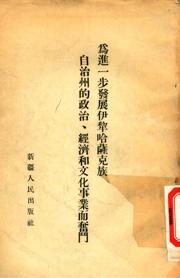 為進一步發展伊犂哈薩克族
自治州的政治、經濟和文化事業而奮鬥
新疆人民出版社